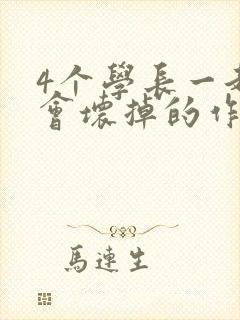 4个學長一起
會壞掉的作
馬連生